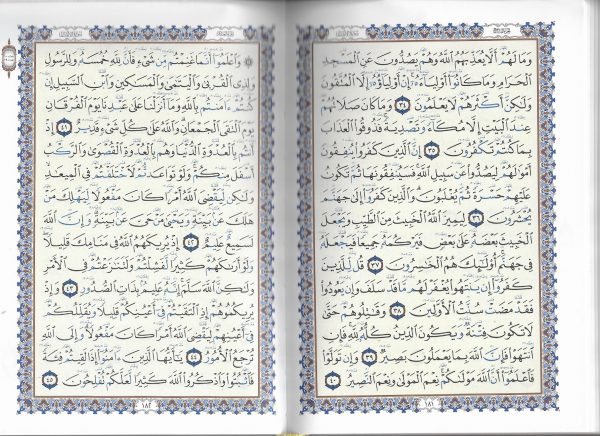 وَمَا لَهُمْ أَلَّا يُعَذِّبَهُمُ اللَّهُ وَهُمْ يَصُدُّونَ عَنِ الْمَسْجِدِ
الْحَرَامِ وَمَا كَانُوا أَوْلِيَاءَهُ إِنْ أَوْلِيَاؤُهُ إِلَّا الْمُتَّقُونَ
وَلَٰكِنَّ أَكْثَرَهُمْ لَا يَعْلَمُونَ ٣٤ وَمَا كَانَ صَلَاتُهُمْ
عِنْدَ الْبَيْتِ إِلَّا مُكَاءً وَتَصْدِيَةً فَذُوقُوا الْعَذَابَ
بِمَا كُنْتُمْ تَكْفُرُونَ ٣٥ إِنَّ الَّذِينَ كَفَرُوا يُنْفِقُونَ
أَمْوَالَهُمْ لِيَصُدُّوا عَنْ سَبِيلِ اللَّهِ فَسَيُنْفِقُونَهَا ثُمَّ تَكُونُ
عَلَيْهِمْ حَسْرَةً ثُمَّ يُغْلَبُونَ وَالَّذِينَ كَفَرُوا إِلَىٰ جَهَنَّمَ
يُحْشَرُونَ ٣٦ لِيَمِيزَ اللَّهُ الْخَبِيثَ مِنَ الطَّيِّبِ وَيَجْعَلَ
الْخَبِيثَ بَعْضَهُ عَلَىٰ بَعْضٍ فَيَرْكُمَهُ جَمِيعًا فَيَجْعَلَهُ
فِي جَهَنَّمَ أُولَٰئِكَ هُمُ الْخَاسِرُونَ ٣٧ قُلْ لِلَّذِينَ
كَفَرُوا إِنْ يَنْتَهُوا يُغْفَرْ لَهُمْ مَا قَدْ سَلَفَ وَإِنْ يَعُودُوا
فَقَدْ مَضَتْ سُنَّتُ الْأَوَّلِينَ ٣٨ وَقَاتِلُوهُمْ حَتَّىٰ
لَا تَكُونَ فِتْنَةٌ وَيَكُونَ الدِّينُ كُلُّهُ لِلَّهِ فَإِنِ
انْتَهَوْا فَإِنَّ اللَّهَ بِمَا يَعْمَلُونَ بَصِيرٌ ٣٩ وَإِنْ تَوَلَّوْا
فَاعْلَمُوا أَنَّ اللَّهَ مَوْلَاكُمْ نِعْمَ الْمَوْلَىٰ وَنِعْمَ النَّصِيرُ ٤٠
١٨١
وَاعْلَمُوا أَنَّمَا غَنِمْتُمْ مِنْ شَيْءٍ فَأَنَّ لِلَّهِ خُمُسَهُ وَلِلرَّسُولِ
وَلِذِي الْقُرْبَىٰ وَالْيَتَامَىٰ وَالْمَسَاكِينِ وَابْنِ السَّبِيلِ إِنْ
كُنْتُمْ آمَنْتُمْ بِاللَّهِ وَمَا أَنْزَلْنَا عَلَىٰ عَبْدِنَا يَوْمَ الْفُرْقَانِ
يَوْمَ الْتَقَى الْجَمْعَانِ وَاللَّهُ عَلَىٰ كُلِّ شَيْءٍ قَدِيرٌ ٤١ إِذْ
أَنْتُمْ بِالْعُدْوَةِ الدُّنْيَا وَهُمْ بِالْعُدْوَةِ الْقُصْوَىٰ وَالرَّكْبُ
أَسْفَلَ مِنْكُمْ وَلَوْ تَوَاعَدْتُمْ لَاخْتَلَفْتُمْ فِي الْمِيعَادِ
وَلَٰكِنْ لِيَقْضِيَ اللَّهُ أَمْرًا كَانَ مَفْعُولًا لِيَهْلِكَ مَنْ
هَلَكَ عَنْ بَيِّنَةٍ وَيَحْيَىٰ مَنْ حَيَّ عَنْ بَيِّنَةٍ وَإِنَّ اللَّهَ
لَسَمِيعٌ عَلِيمٌ ٤٢ إِذْ يُرِيكَهُمُ اللَّهُ فِي مَنَامِكَ قَلِيلًا
وَلَوْ أَرَاكَهُمْ كَثِيرًا لَفَشِلْتُمْ وَلَتَنَازَعْتُمْ فِي الْأَمْرِ
وَلَٰكِنَّ اللَّهَ سَلَّمَ إِنَّهُ عَلِيمٌ بِذَاتِ الصُّدُورِ ٤٣ وَإِذْ
يُرِيكُمُوهُمْ إِذِ الْتَقَيْتُمْ فِي أَعْيُنِكُمْ قَلِيلًا وَيُقَلِّلُكُمْ
فِي أَعْيُنِهِمْ لِيَقْضِيَ اللَّهُ أَمْرًا كَانَ مَفْعُولًا وَإِلَى اللَّهِ
تُرْجَعُ الْأُمُورُ ٤٤ يَا أَيُّهَا الَّذِينَ آمَنُوا إِذَا لَقِيتُمْ فِئَةً
فَاثْبُتُوا وَاذْكُرُوا اللَّهَ كَثِيرًا لَعَلَّكُمْ تُفْلِحُونَ ٤٥
١٨٢